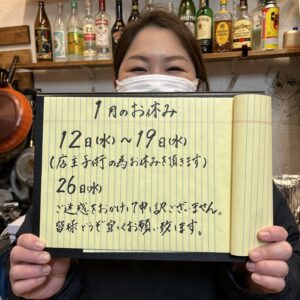 1月のお休み
12日(水)〜19日(水)
(店主手術の為お休みを頂きます)
26日(水)
ご迷惑をおかけして申し訳ございません。
皆様どうぞ宜しくお願い致します。